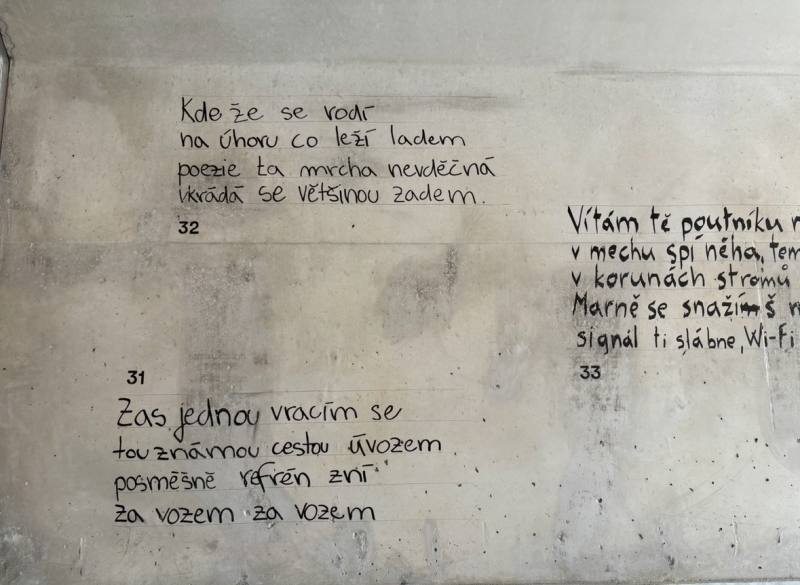 Kde že se rodí
na úhoru co leží ladem
poezie ta mrcha nevděčná
vkrádá se většinou zadem.
32
31
Zas jednou vracím se
tou známou cestou úvozem
posměšně refrén zní
za vozem za vozem
Vítám tě poutníku
v mechu spí něha,
v korunách stromů
Marně se snažíš
signál ti slábne, Wi-Fi
33